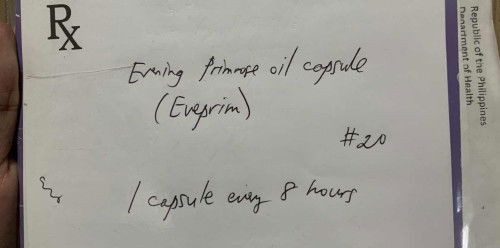 Rx
Evening Primrose oil capsule
(Eveprim)
#20
1 capsule every 8 hours
Republic of the Philippines
Department of Health